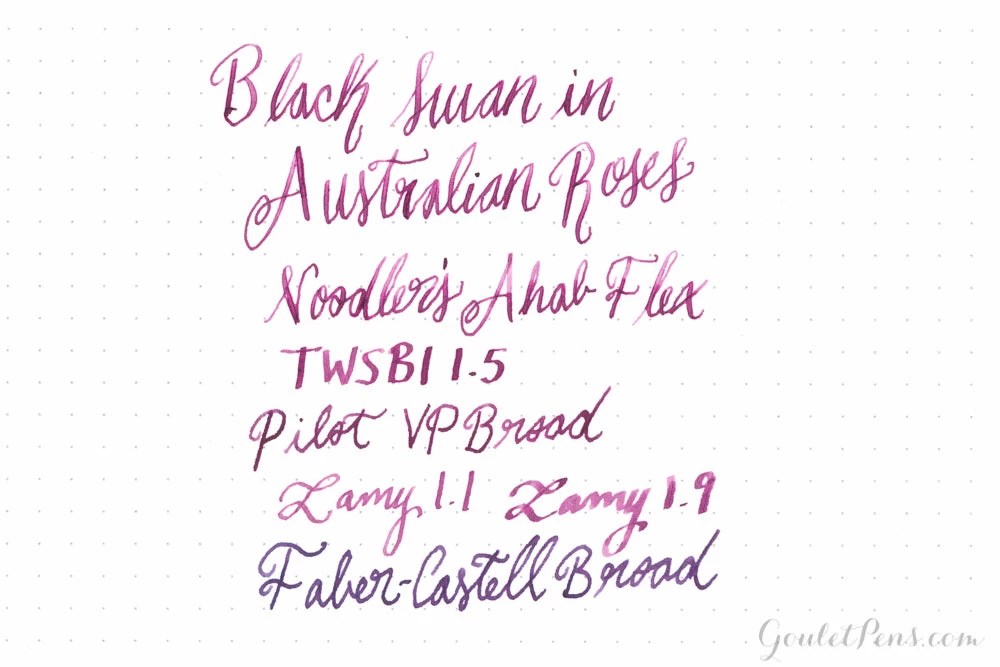 Black Swan in
Australian Roses
Noodler's Ahab Flex
TWSBI 1.5
Pilot VP Broad
Lamy 1.1 Lamy 1.9
Faber-Castell Broad
GouletPens.com